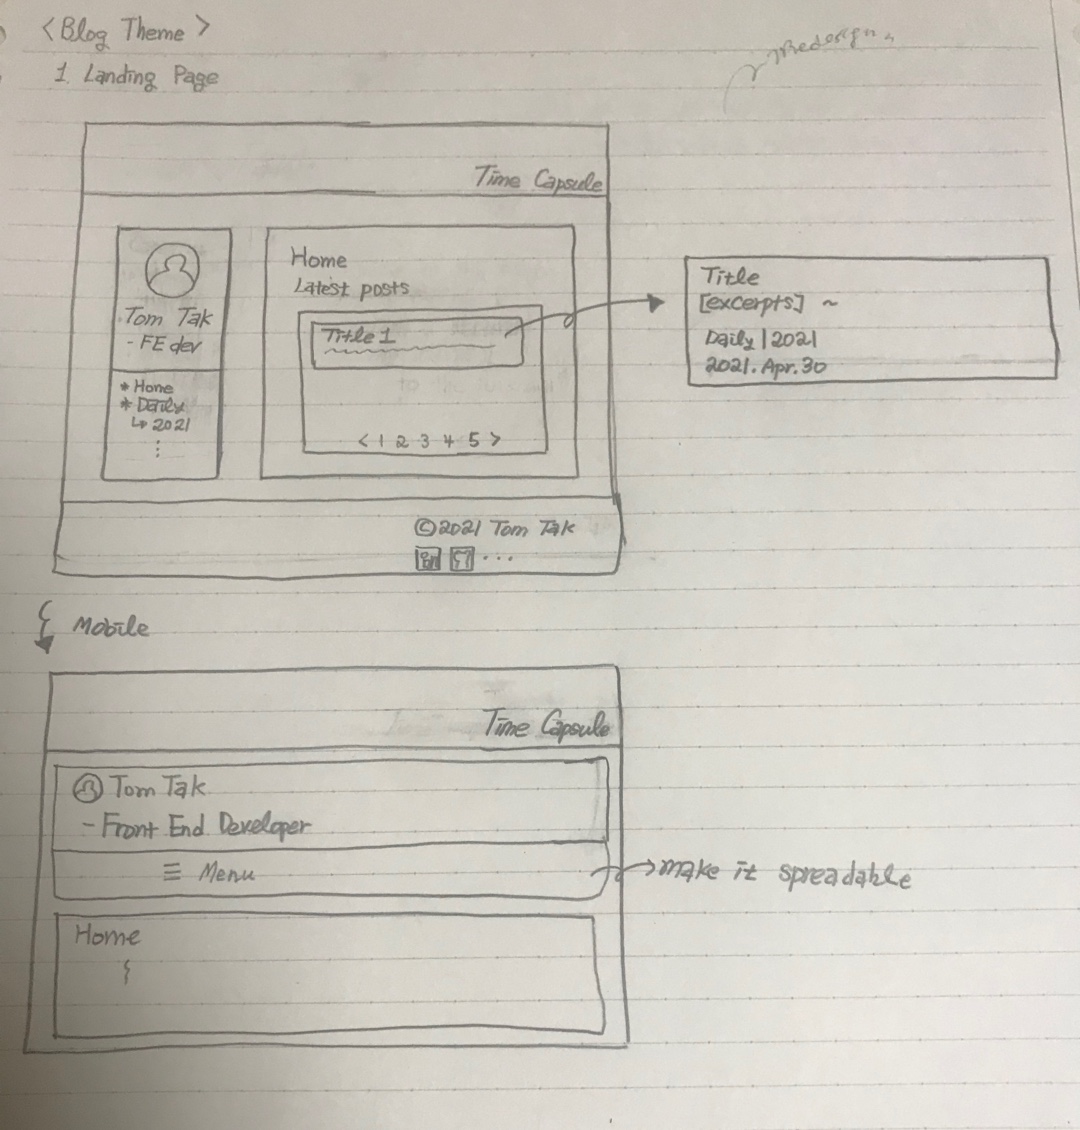 <Blog Theme>
1. Landing Page
Redesign
Time Capsule
Tom Tak
- FE dev
* Home
* Daily
↳ 2021
Home
Latest posts
Title 1
< 1 2 3 4 5 >
Title
[excerpts] ~
Daily | 2021
2021. Apr. 30
©2021 Tom Tak
...
Mobile
Time Capsule
Tom Tak
- Front End Developer
☰ Menu
make it spreadable
Home